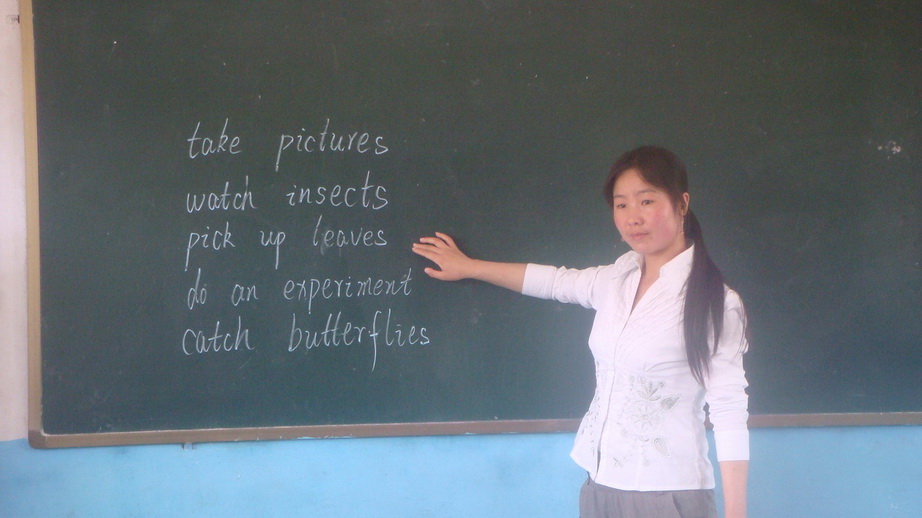 take pictures
watch insects
pick up leaves
do an experiment
catch butterflies